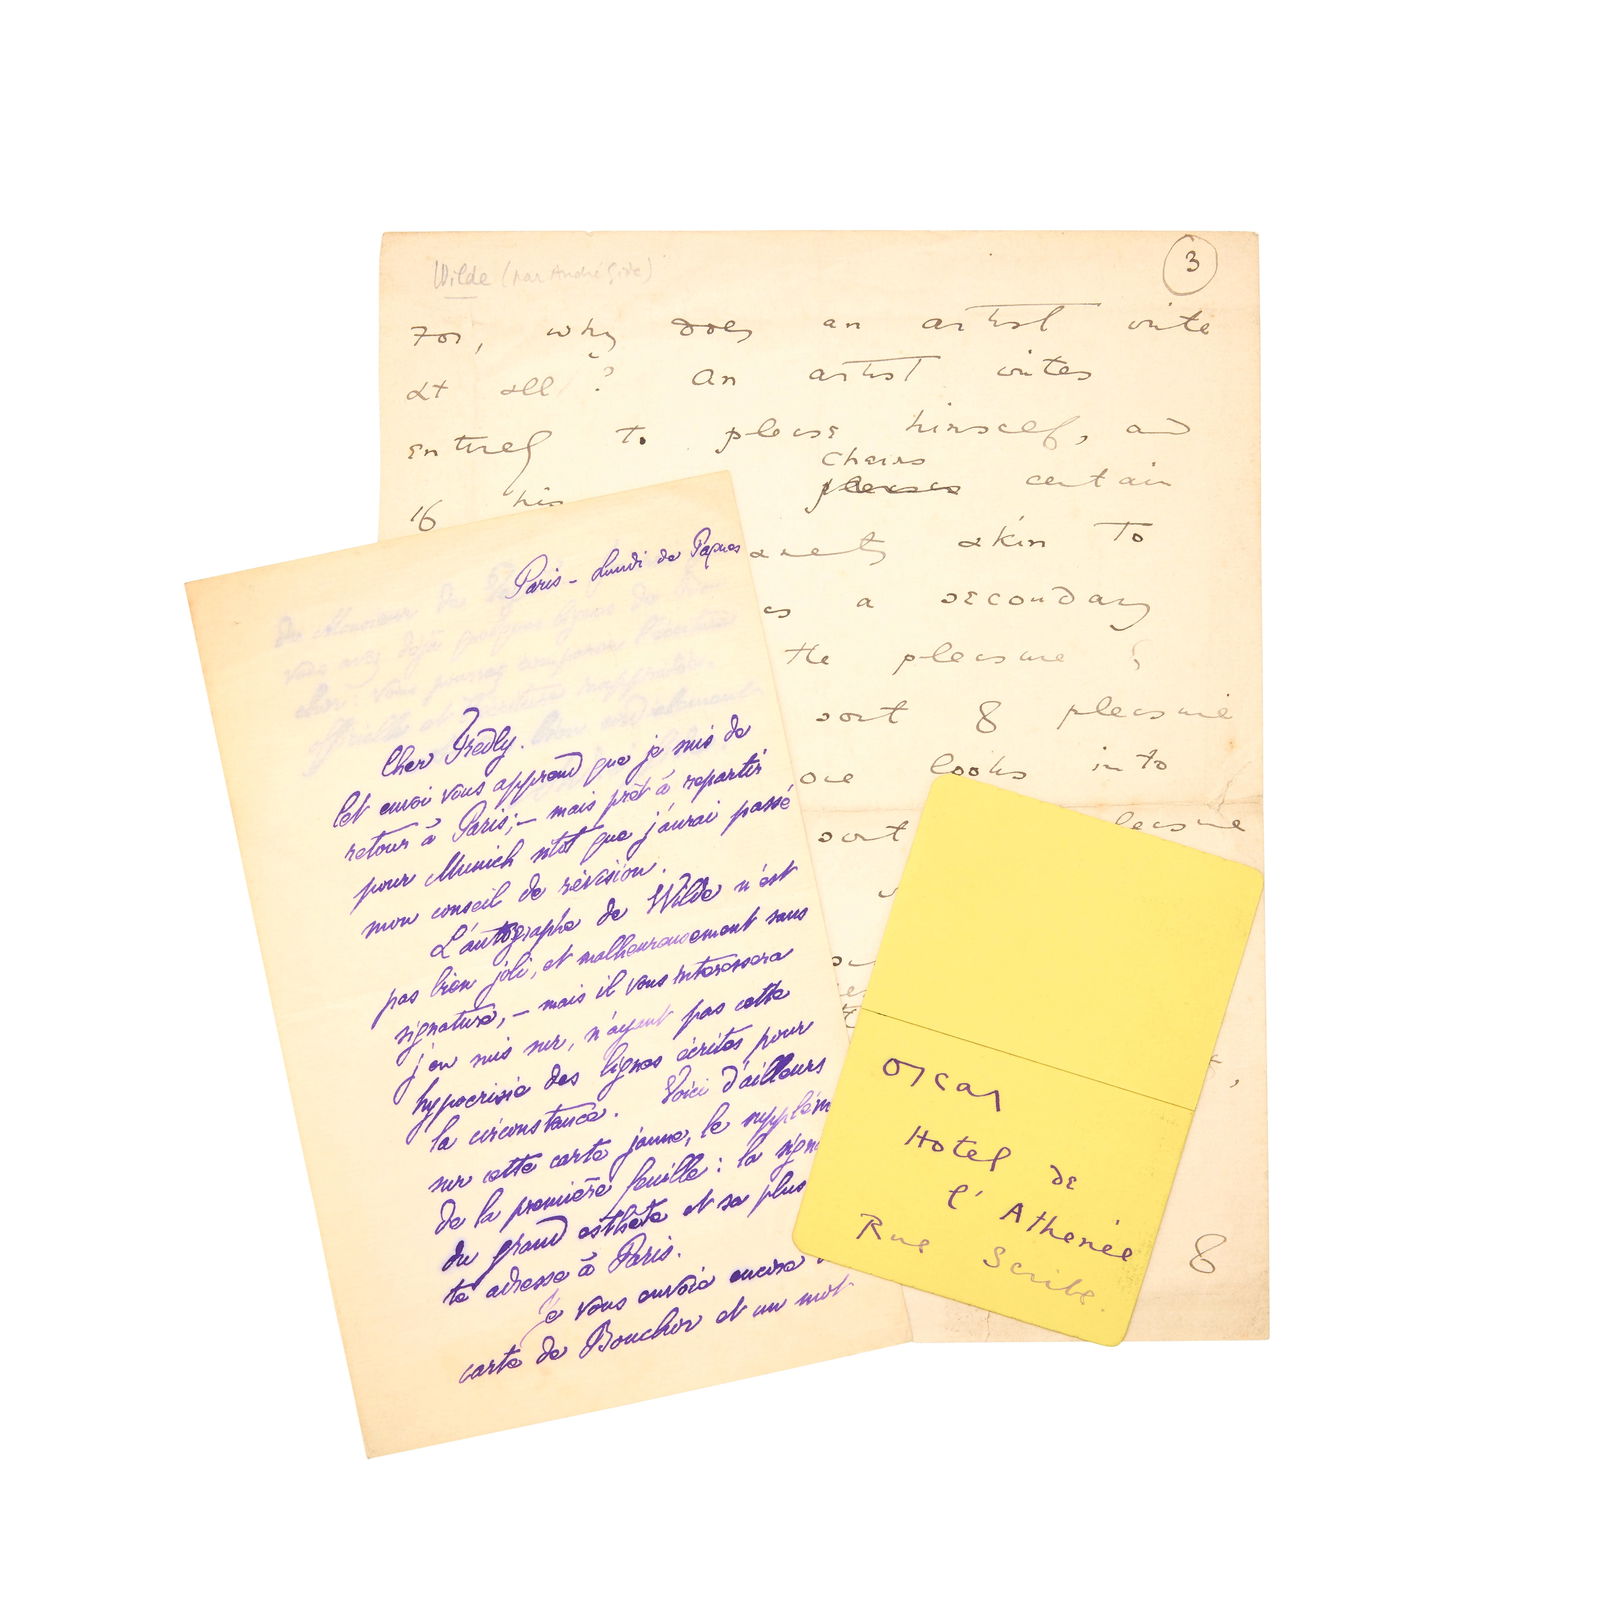 Wilde (par André Gide)
3
For, why does an artist write
at all? An artist writes
entirely to please himself, and
chains
pleases certain
if his
akin to
as a secondary
the pleasure
sort of pleasure
one looks into
sort pleasure
of
Paris - Lundi de Paques
Cher Fredly.
Cet envoi vous apprend que je suis de
retour à Paris; - mais prêt à repartir
pour Munich sitôt que j'aurai passé
mon conseil de révision.
L'autographe de Wilde n'est
pas bien joli, et malheureusement sans
signature, - mais il vous interessera
j'en suis sur, n'ayant pas cette
hypocrisie des lignes écrites pour
la circonstance. Voici d'ailleurs
sur cette carte jaune, le supplém
de la première feuille: la sign
du grand esthète et sa plus
te adresse à Paris.
Je vous envoie encore
carte de Bouchor et un mot
Oscar
Hotel de
l'Athenée
Rue Scribe.